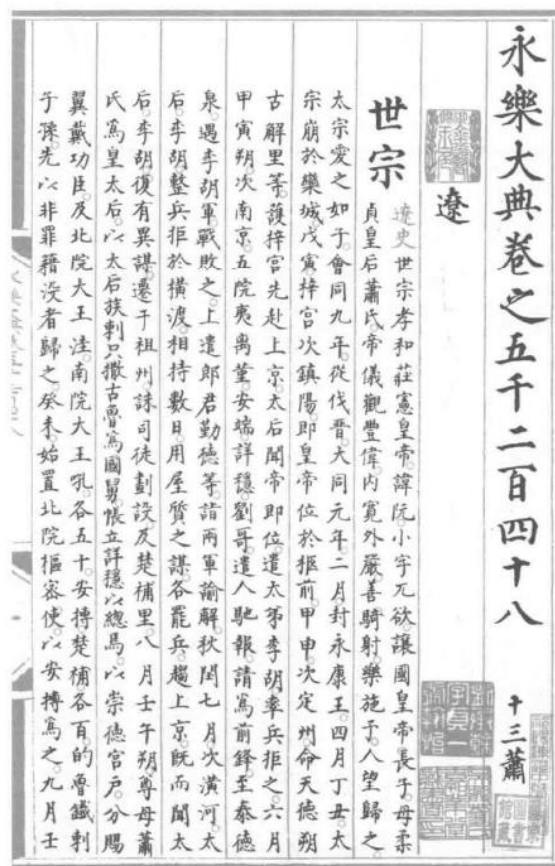 永樂大典卷之五千二百四十八 十三蕭
遼
世宗
遼史世宗孝和莊憲皇帝諱阮小字兀欲讓國皇帝長子母柔
貞皇后蕭氏帝儀觀豐偉內寬外嚴善騎射樂施予人望歸之
太宗愛之如子會同九年從伐晉大同元年二月封永康王四月丁丑太
宗崩於欒城戊寅梓宮次鎮陽即皇帝位於柩前甲申次定州命天德朔
古解里等護梓宮先赴上京太后聞帝即位遣太弟李胡率兵拒之六月
甲寅朔次南京五院夷离菫安端詳穩劉哥遣人馳報請爲前鋒至泰德
泉遇李胡軍戰敗之上遣郎君勤德等詣兩軍諭解秋閏七月次潢河太
后李胡整兵拒於橫渡相持數日用屋質之謀各罷兵趨上京既而聞太
后李胡復有異謀遷于祖州誅司徒劃設及楚補里八月壬午朔尊母蕭
氏爲皇太后以太后族剌只撒古魯爲國舅帳立詳穩以總焉以崇德宮戶分賜
翼戴功臣及北院大王洼南院大王吼各五十安摶楚補各百的魯鐵剌
子孫先以非罪籍沒者歸之癸未始置北院樞密使以安摶爲之九月壬